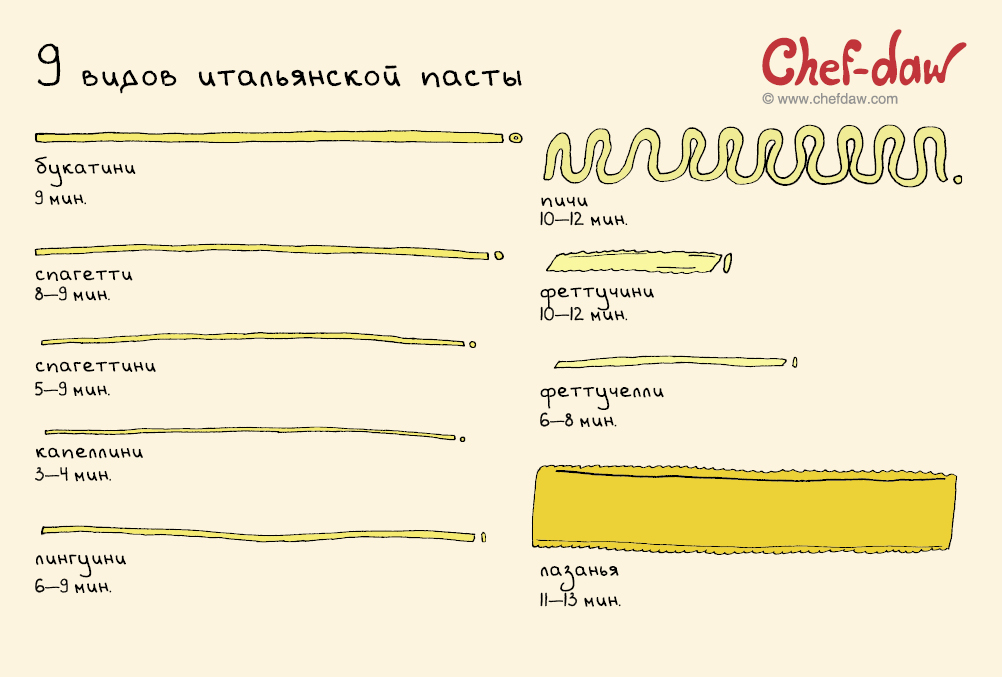 9 видов итальянской пасты
Chef-daw
© www.chefdaw.com
букатини
9 мин.
спагетти
8–9 мин.
спагеттини
5–9 мин.
капеллини
3–4 мин.
лингуини
6–9 мин.
пичи
10–12 мин.
феттучини
10–12 мин.
феттучелли
6–8 мин.
лазанья
11–13 мин.